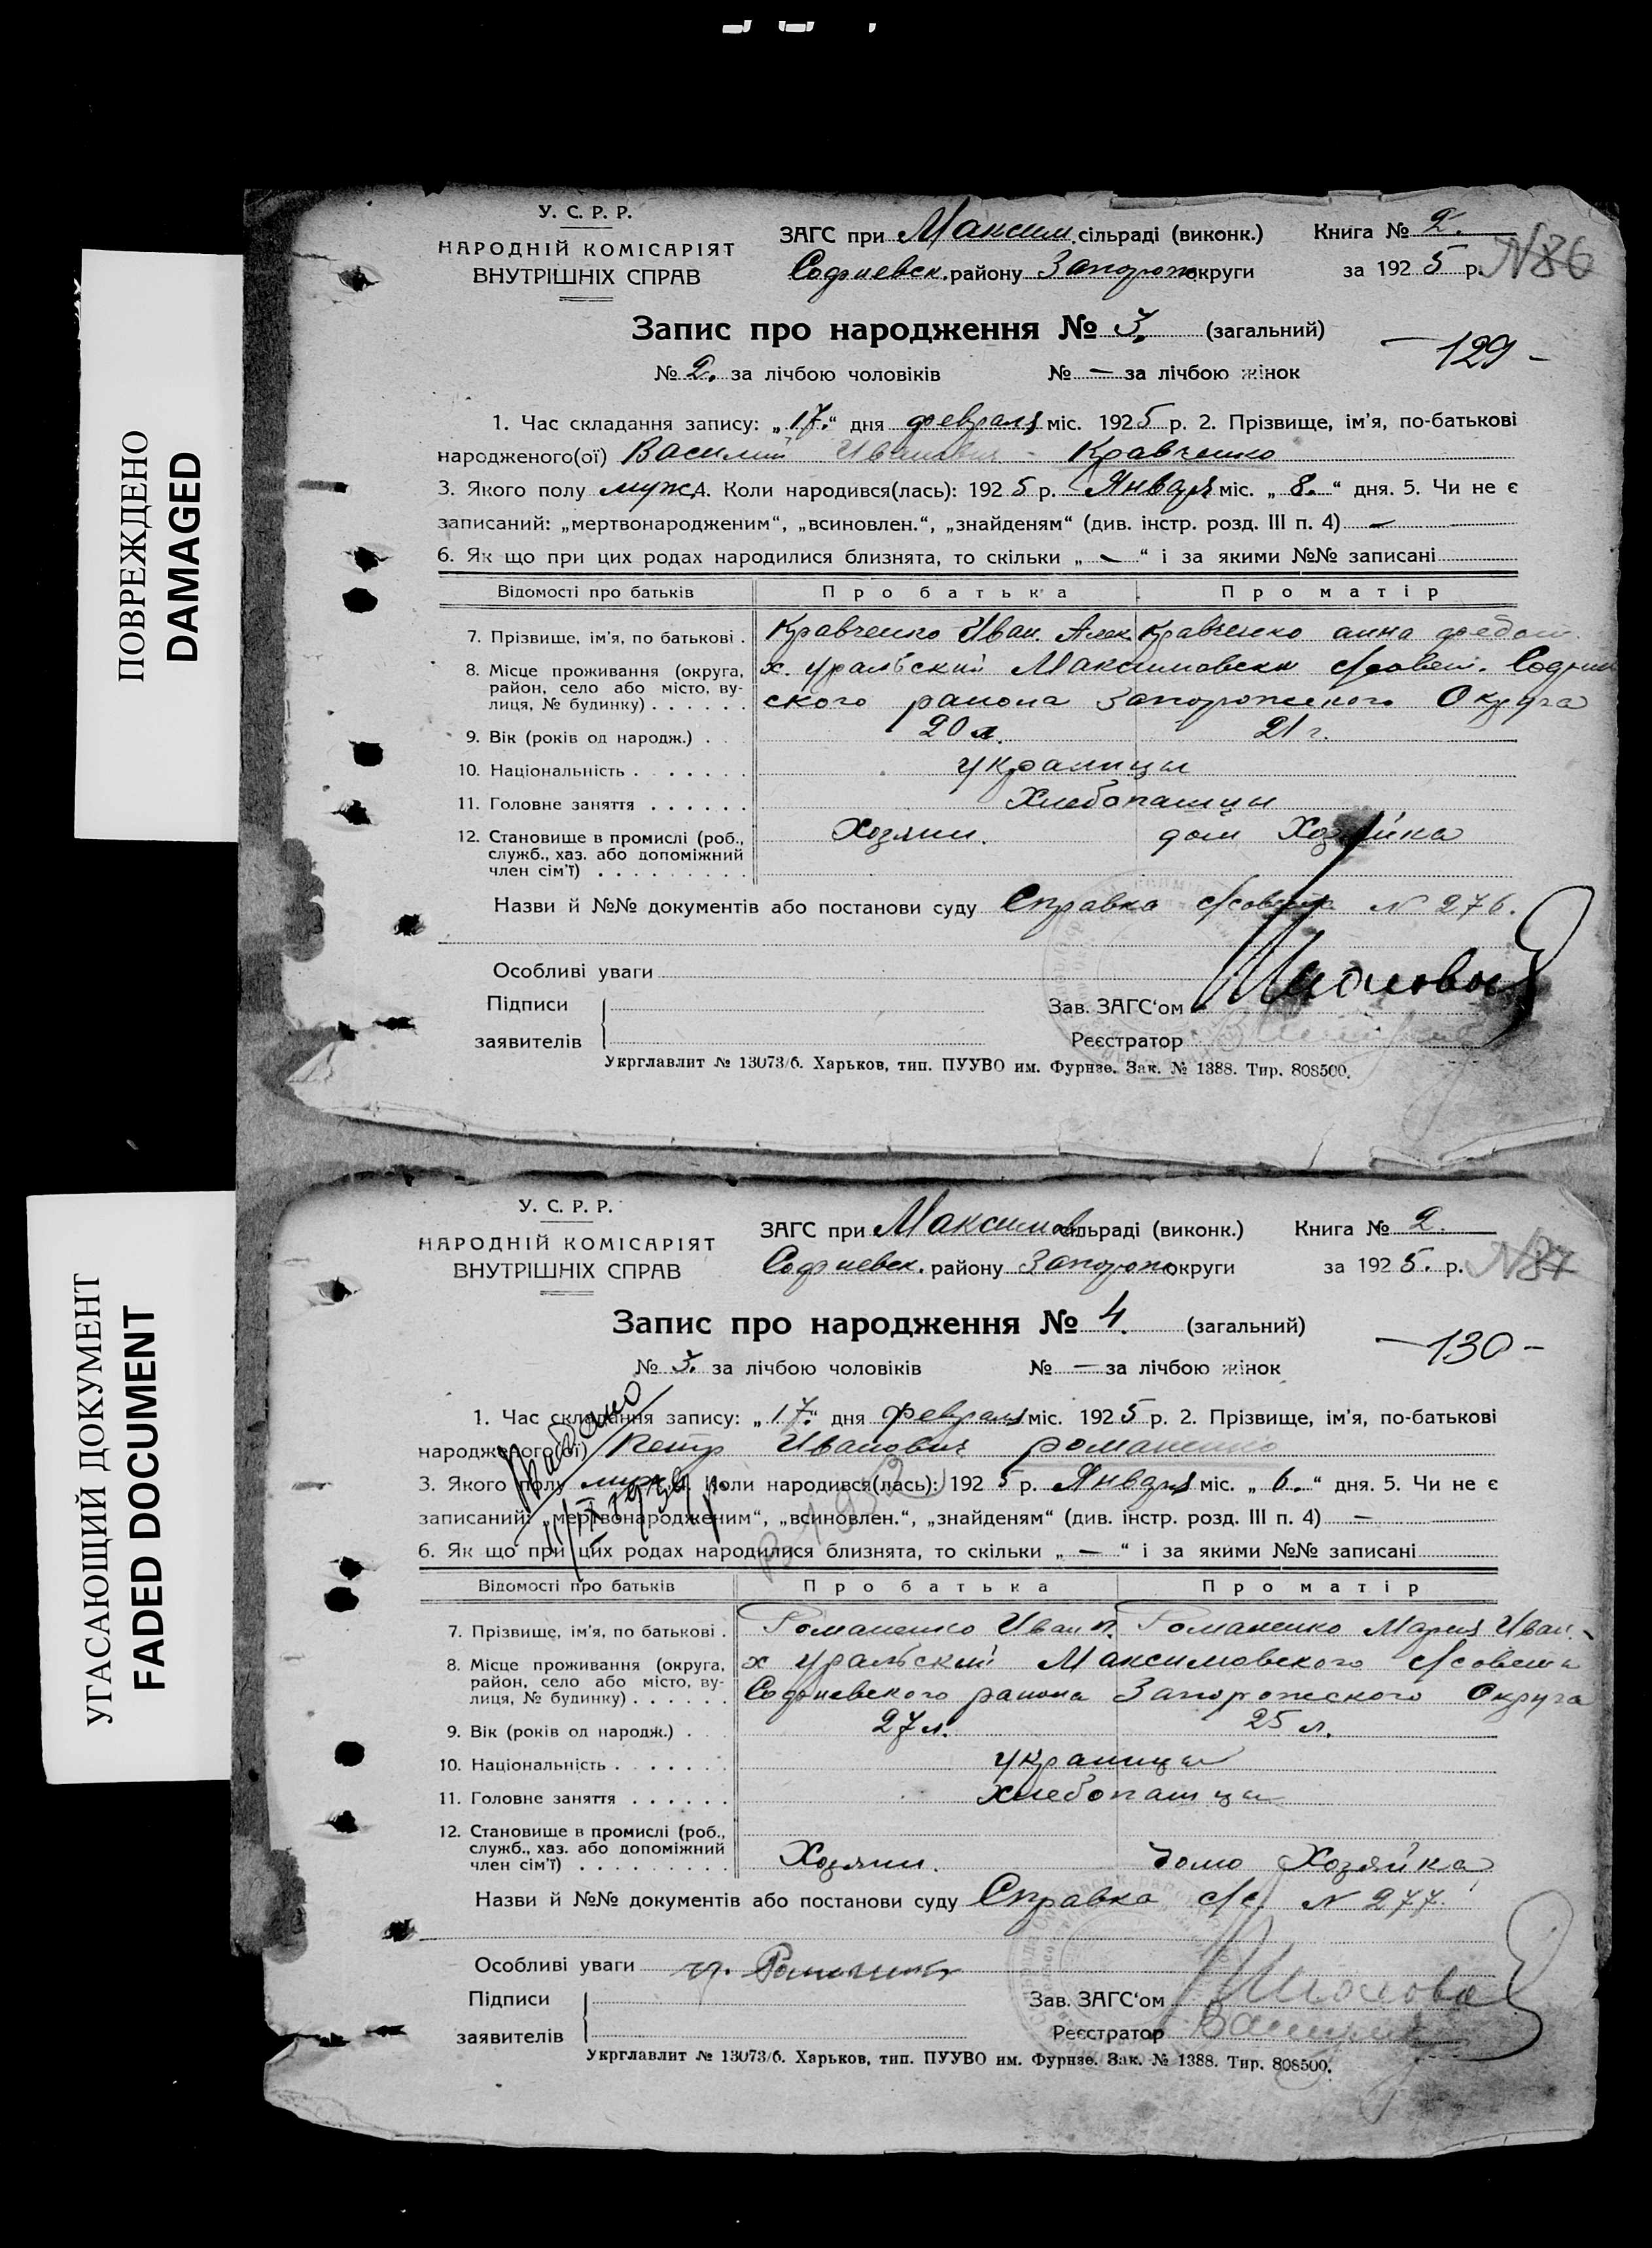 ПОВРЕЖДЕНО
DAMAGED
У. С. Р. Р.
НАРОДНІЙ КОМІСАРІЯТ
ВНУТРІШНІХ СПРАВ
ЗАГС при Максим. сільраді (виконк.)
Софиевск. району Запорож. округи
Книга № 2.
за 1925 р. N86
Запис про народження № 3. (загальний)
- 129 -
№ 2. за лічбою чоловіків № — за лічбою жінок
1. Час складання запису: „17.“ дня февраля міс. 1925 р. 2. Прізвище, ім'я, по-батькові
народженого(ої) Василий Иванович - Кравченко
3. Якого полу муж. 4. Коли народився(лась): 1925 р. Января міс. „8.“ дня. 5. Чи не є
записаний: „мертвонародженим“, „всиновлен.“, „знайденям“ (див. інстр. розд. III п. 4) —
6. Як що при цих родах народилися близнята, то скільки „—“ і за якими №№ записані
Відомості про батьків Про батька Про матір
7. Прізвище, ім'я, по батькові . Кравченко Иван. Алек. Кравченко анна федот.
8. Місце проживання (округа, район, село або місто, вулиця, № будинку) . . . . . . х. уральский Максимовски с/совет. Софиев
ского района Запорожского Округа
9. Вік (років од народж.) . . 20 л. 21 г.
10. Національність . . . . . . . украинцы
11. Головне заняття . . . . . . Хлебопашцы
12. Становище в промислі (роб., служб., хаз. або допоміжний член сім'ї) . . . . . . . . . Хозяин. дом Хозяйка
Назви й №№ документів або постанови суду Справка с/совета N 276.
Особливі уваги
Підписи
заявителів
Зав. ЗАГС'ом
Реєстратор
Укрглавлит № 13073/б. Харьков, тип. ПУУВО им. Фурнзе. Зак. № 1388. Тир. 808500.
УГАСАЮЩИЙ ДОКУМЕНТ
FADED DOCUMENT
У. С. Р. Р.
НАРОДНІЙ КОМІСАРІЯТ
ВНУТРІШНІХ СПРАВ
ЗАГС при Максимов. сільраді (виконк.)
Софиевск. району Запорож. округи
Книга № 2.
за 1925. р. N87
Запис про народження № 4. (загальний)
- 130 -
№ 3. за лічбою чоловіків № — за лічбою жінок
1. Час складання запису: „17.“ дня февраля міс. 1925 р. 2. Прізвище, ім'я, по-батькові
народженого(ої) Петр Иванович романенко
3. Якого полу муж. 4. Коли народився(лась): 1925 р. Января міс. „6.“ дня. 5. Чи не є
записаний: „мертвонародженим“, „всиновлен.“, „знайденям“ (див. інстр. розд. III п. 4) —
6. Як що при цих родах народилися близнята, то скільки „—“ і за якими №№ записані
Відомості про батьків Про батька Про матір
7. Прізвище, ім'я, по батькові . Романенко Иван П. Романенко Мария Иван.
8. Місце проживання (округа, район, село або місто, вулиця, № будинку) . . . . . . х уральский Максимовского с/совета
Софиевского района Запорожского Округа
9. Вік (років од народж.) . . . 27 л. 25 л.
10. Національність . . . . . . . украинцы
11. Головне заняття . . . . . . хлебопашцы
12. Становище в промислі (роб., служб., хаз. або допоміжний член сім'ї) . . . . . . . . . Хозяин. домо Хозяйка
Назви й №№ документів або постанови суду Справка с/с. N 277.
Особливі уваги гр. Романенко
Підписи
заявителів
Зав. ЗАГС'ом
Реєстратор
Укрглавлит № 13073/б. Харьков, тип. ПУУВО им. Фурнзе. Зак. № 1388. Тир. 808500.